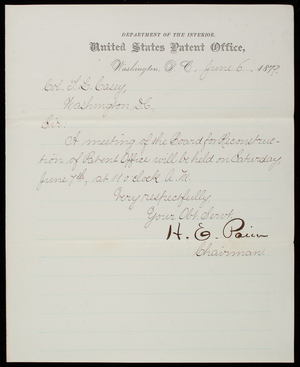 DEPARTMENT OF THE INTERIOR,
United States Patent Office,
Washington, D. C. June 6, 1879.
Col. T. L. Casey,
Washington D.C.
Sir:
A meeting of the Board for Reconstruc-
tion of Patent Office will be held on Saturday
June 7th, at 11 o'clock A.M.
Very respectfully
Your Obt. Servt.
H. E. Paine
Chairman